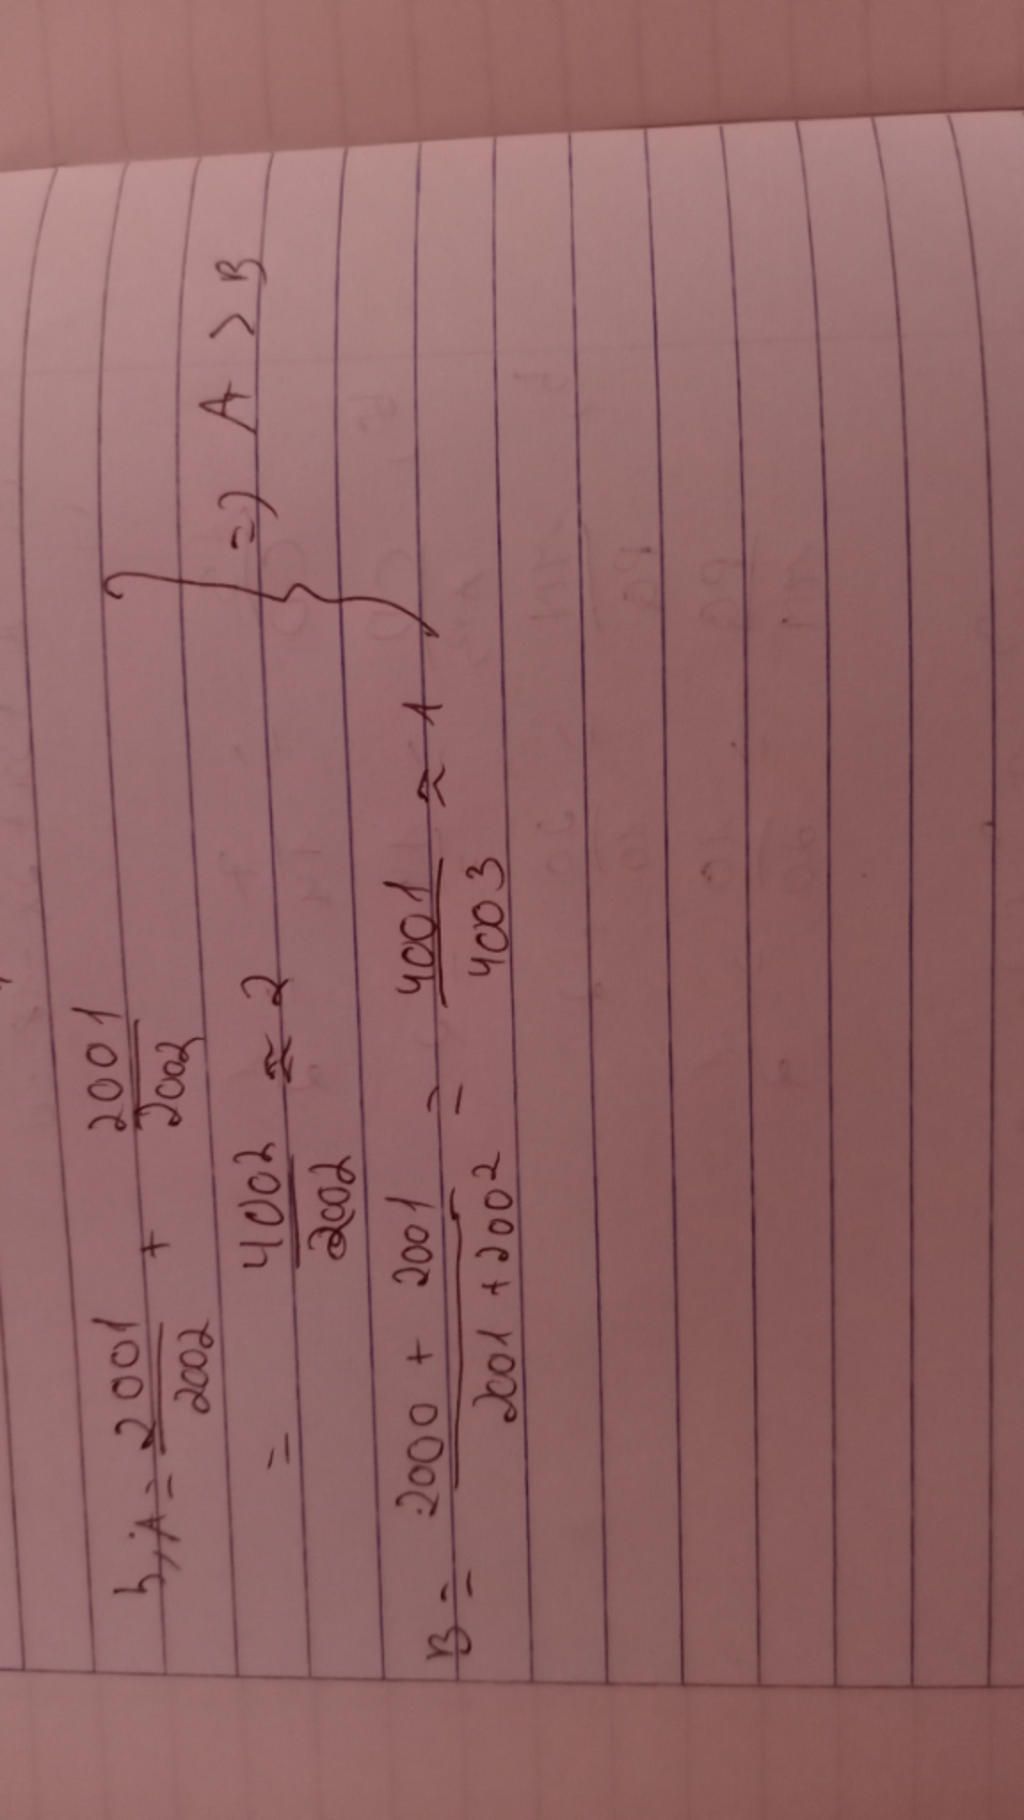 b, A = 2001/2002 + 2001/2002
= 4002/2002 ≈ 2
B = 2000 + 2001 / 2001 + 2002 = 4001/4003 ≈ 1
} => A > B